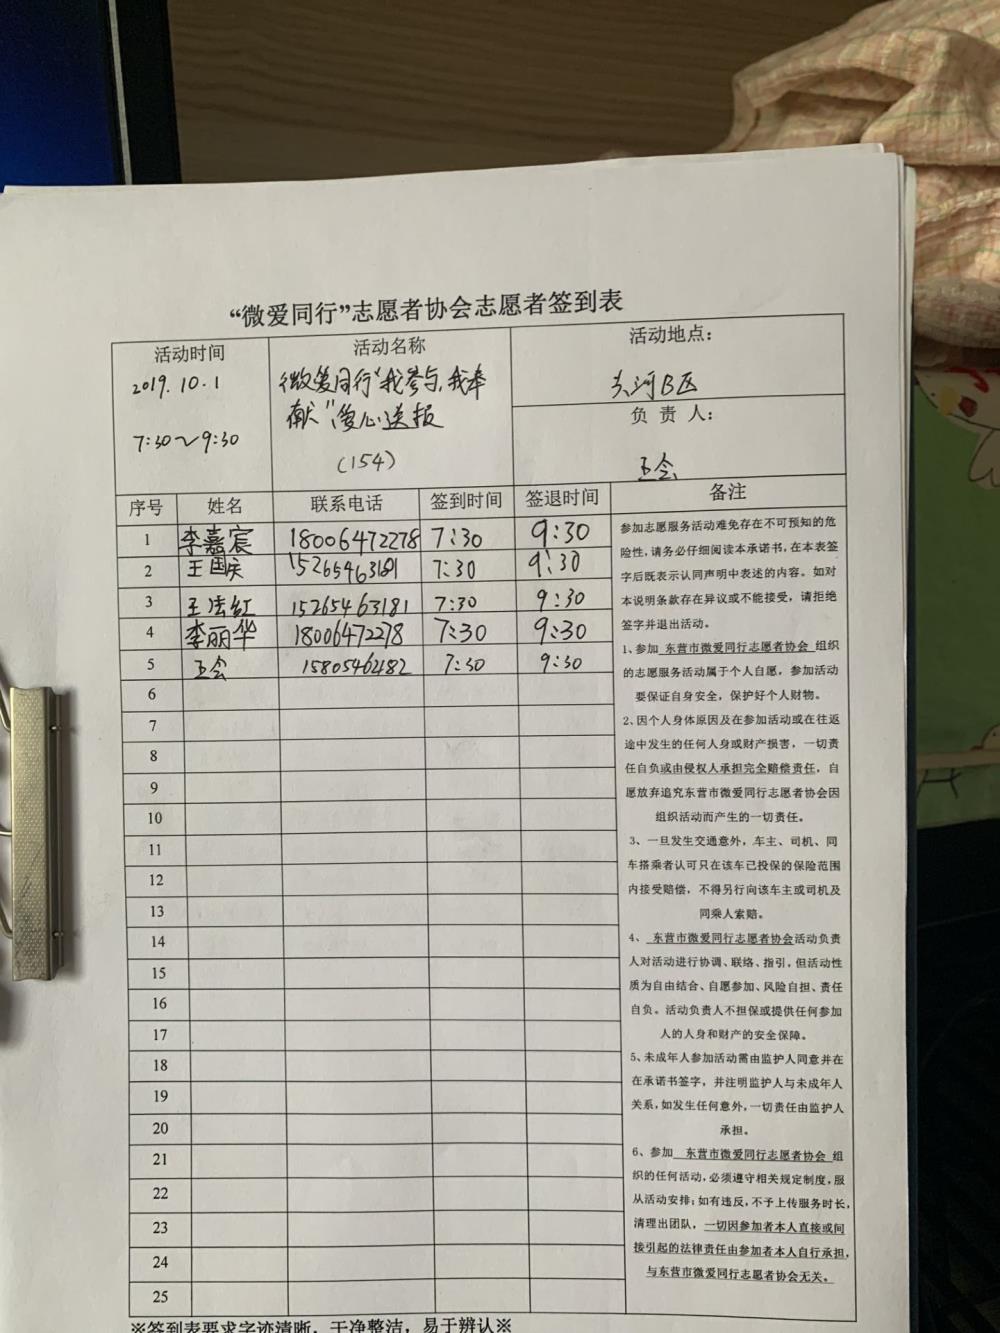 “微爱同行”志愿者协会志愿者签到表
活动时间
2019.10.1
7:30～9:30
活动名称
微爱同行“我参与,我奉
献”爱心送报
(154)
活动地点：
河B区
负责人：
王会
序号 姓名 联系电话 签到时间 签退时间 备注
1 李嘉宸 18006472278 7:30 9:30
2 王国庆 15265463181 7:30 9:30
3 王法红 15265463181 7:30 9:30
4 李丽华 18006472278 7:30 9:30
5 王会 15805462482 7:30 9:30
6
7
8
9
10
11
12
13
14
15
16
17
18
19
20
21
22
23
24
25
参加志愿服务活动难免存在不可预知的危
险性，请务必仔细阅读本承诺书，在本表签
字后既表示认同声明中表述的内容。如对
本说明条款存在异议或不能接受，请拒绝
签字并退出活动。
1、参加 东营市微爱同行志愿者协会 组织
的志愿服务活动属于个人自愿，参加活动
要保证自身安全，保护好个人财物。
2、因个人身体原因及在参加活动或在往返
途中发生的任何人身或财产损害，一切责
任自负或由侵权人承担完全赔偿责任，自
愿放弃追究东营市微爱同行志愿者协会因
组织活动而产生的一切责任。
3、一旦发生交通意外，车主、司机、同
车搭乘者认可只在该车已投保的保险范围
内接受赔偿，不得另行向该车主或司机及
同乘人索赔。
4、 东营市微爱同行志愿者协会活动负责
人对活动进行协调、联络、指引，但活动性
质为自由结合、自愿参加、风险自担、责任
自负。活动负责人不担保或提供任何参加
人的人身和财产的安全保障。
5、未成年人参加活动需由监护人同意并在
在承诺书签字，并注明监护人与未成年人
关系，如发生任何意外，一切责任由监护人
承担。
6、参加 东营市微爱同行志愿者协会 组
织的任何活动，必须遵守相关规定制度，服
从活动安排；如有违反，不予上传服务时长，
清理出团队，一切因参加者本人直接或间
接引起的法律责任由参加者本人自行承担，
与东营市微爱同行志愿者协会无关。
※签到表要求字迹清晰，干净整洁，易于辨认※